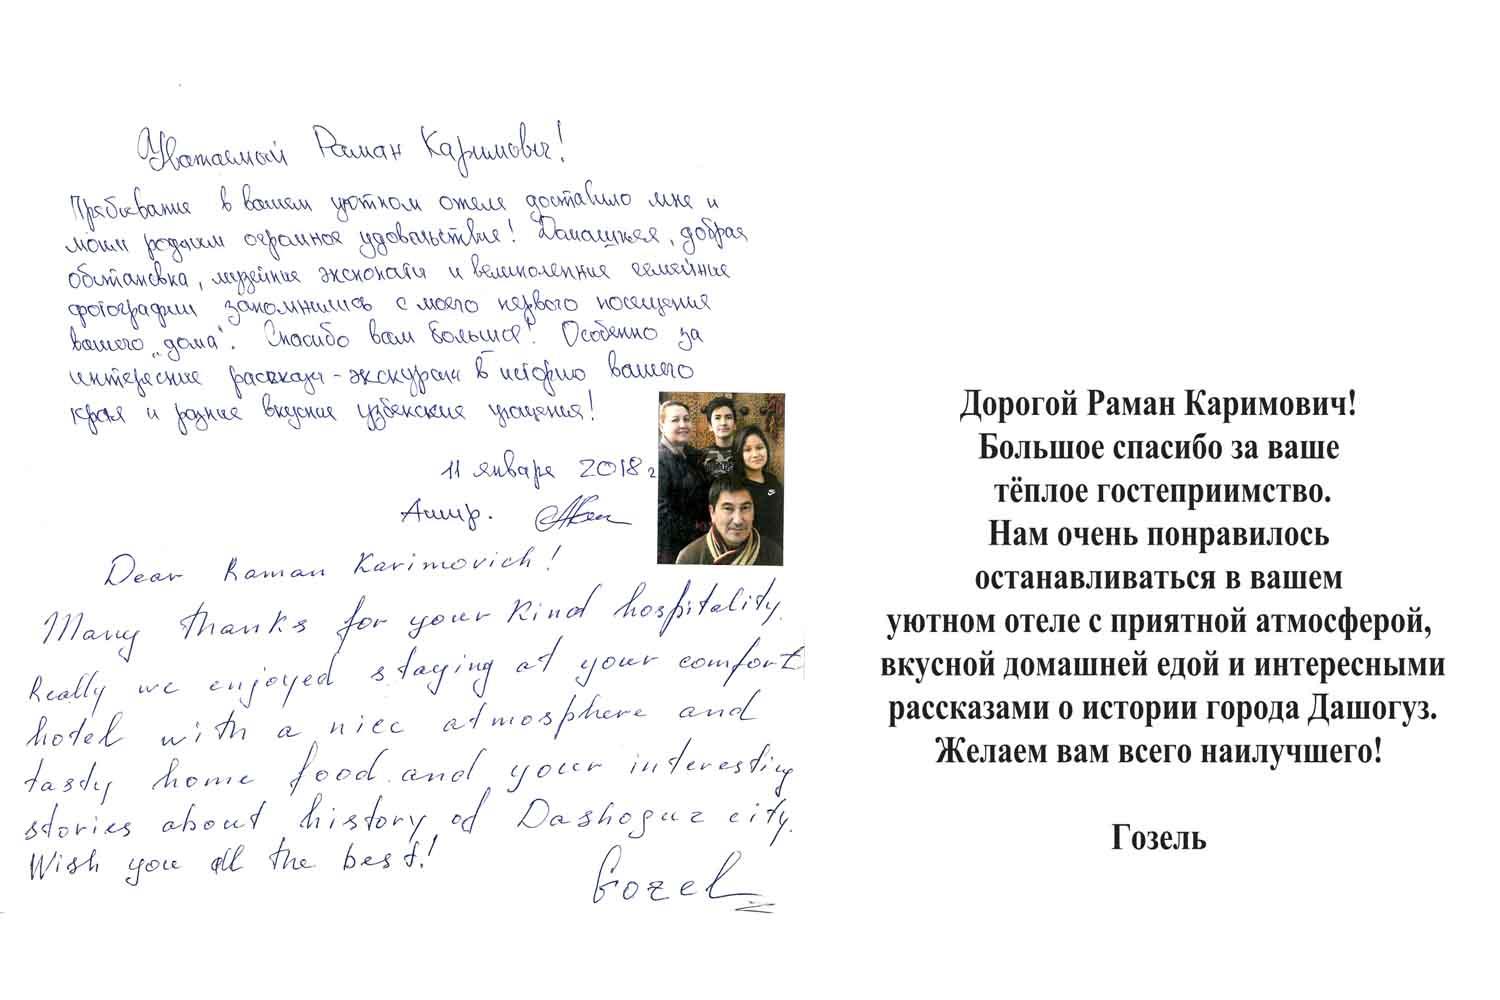 Уважаемый Раман Каримович!
Прябывание в вашем уютном отеле доставило мне и
моим родным огромное удовольствие! Домашняя, добрая
обстановка, музейные экспонаты и великолепные семейные
фотографии запомнились с моего первого посещения
вашего „дома". Спасибо вам большое! Особенно за
интересные рассказы-экскурсы в историю вашего
края и разные вкусные узбекские угощения!
11 января 2018 г
Ашир.
Dear Raman Karimovich!
Many thanks for your kind hospitality.
Really we enjoyed staying at your comfort
hotel with a nice atmosphere and
tasty home food and your interesting
stories about history of Dashoguz city.
Wish you all the best!
Gozel
Дорогой Раман Каримович!
Большое спасибо за ваше
тёплое гостеприимство.
Нам очень понравилось
останавливаться в вашем
уютном отеле с приятной атмосферой,
вкусной домашней едой и интересными
рассказами о истории города Дашогуз.
Желаем вам всего наилучшего!
Гозель